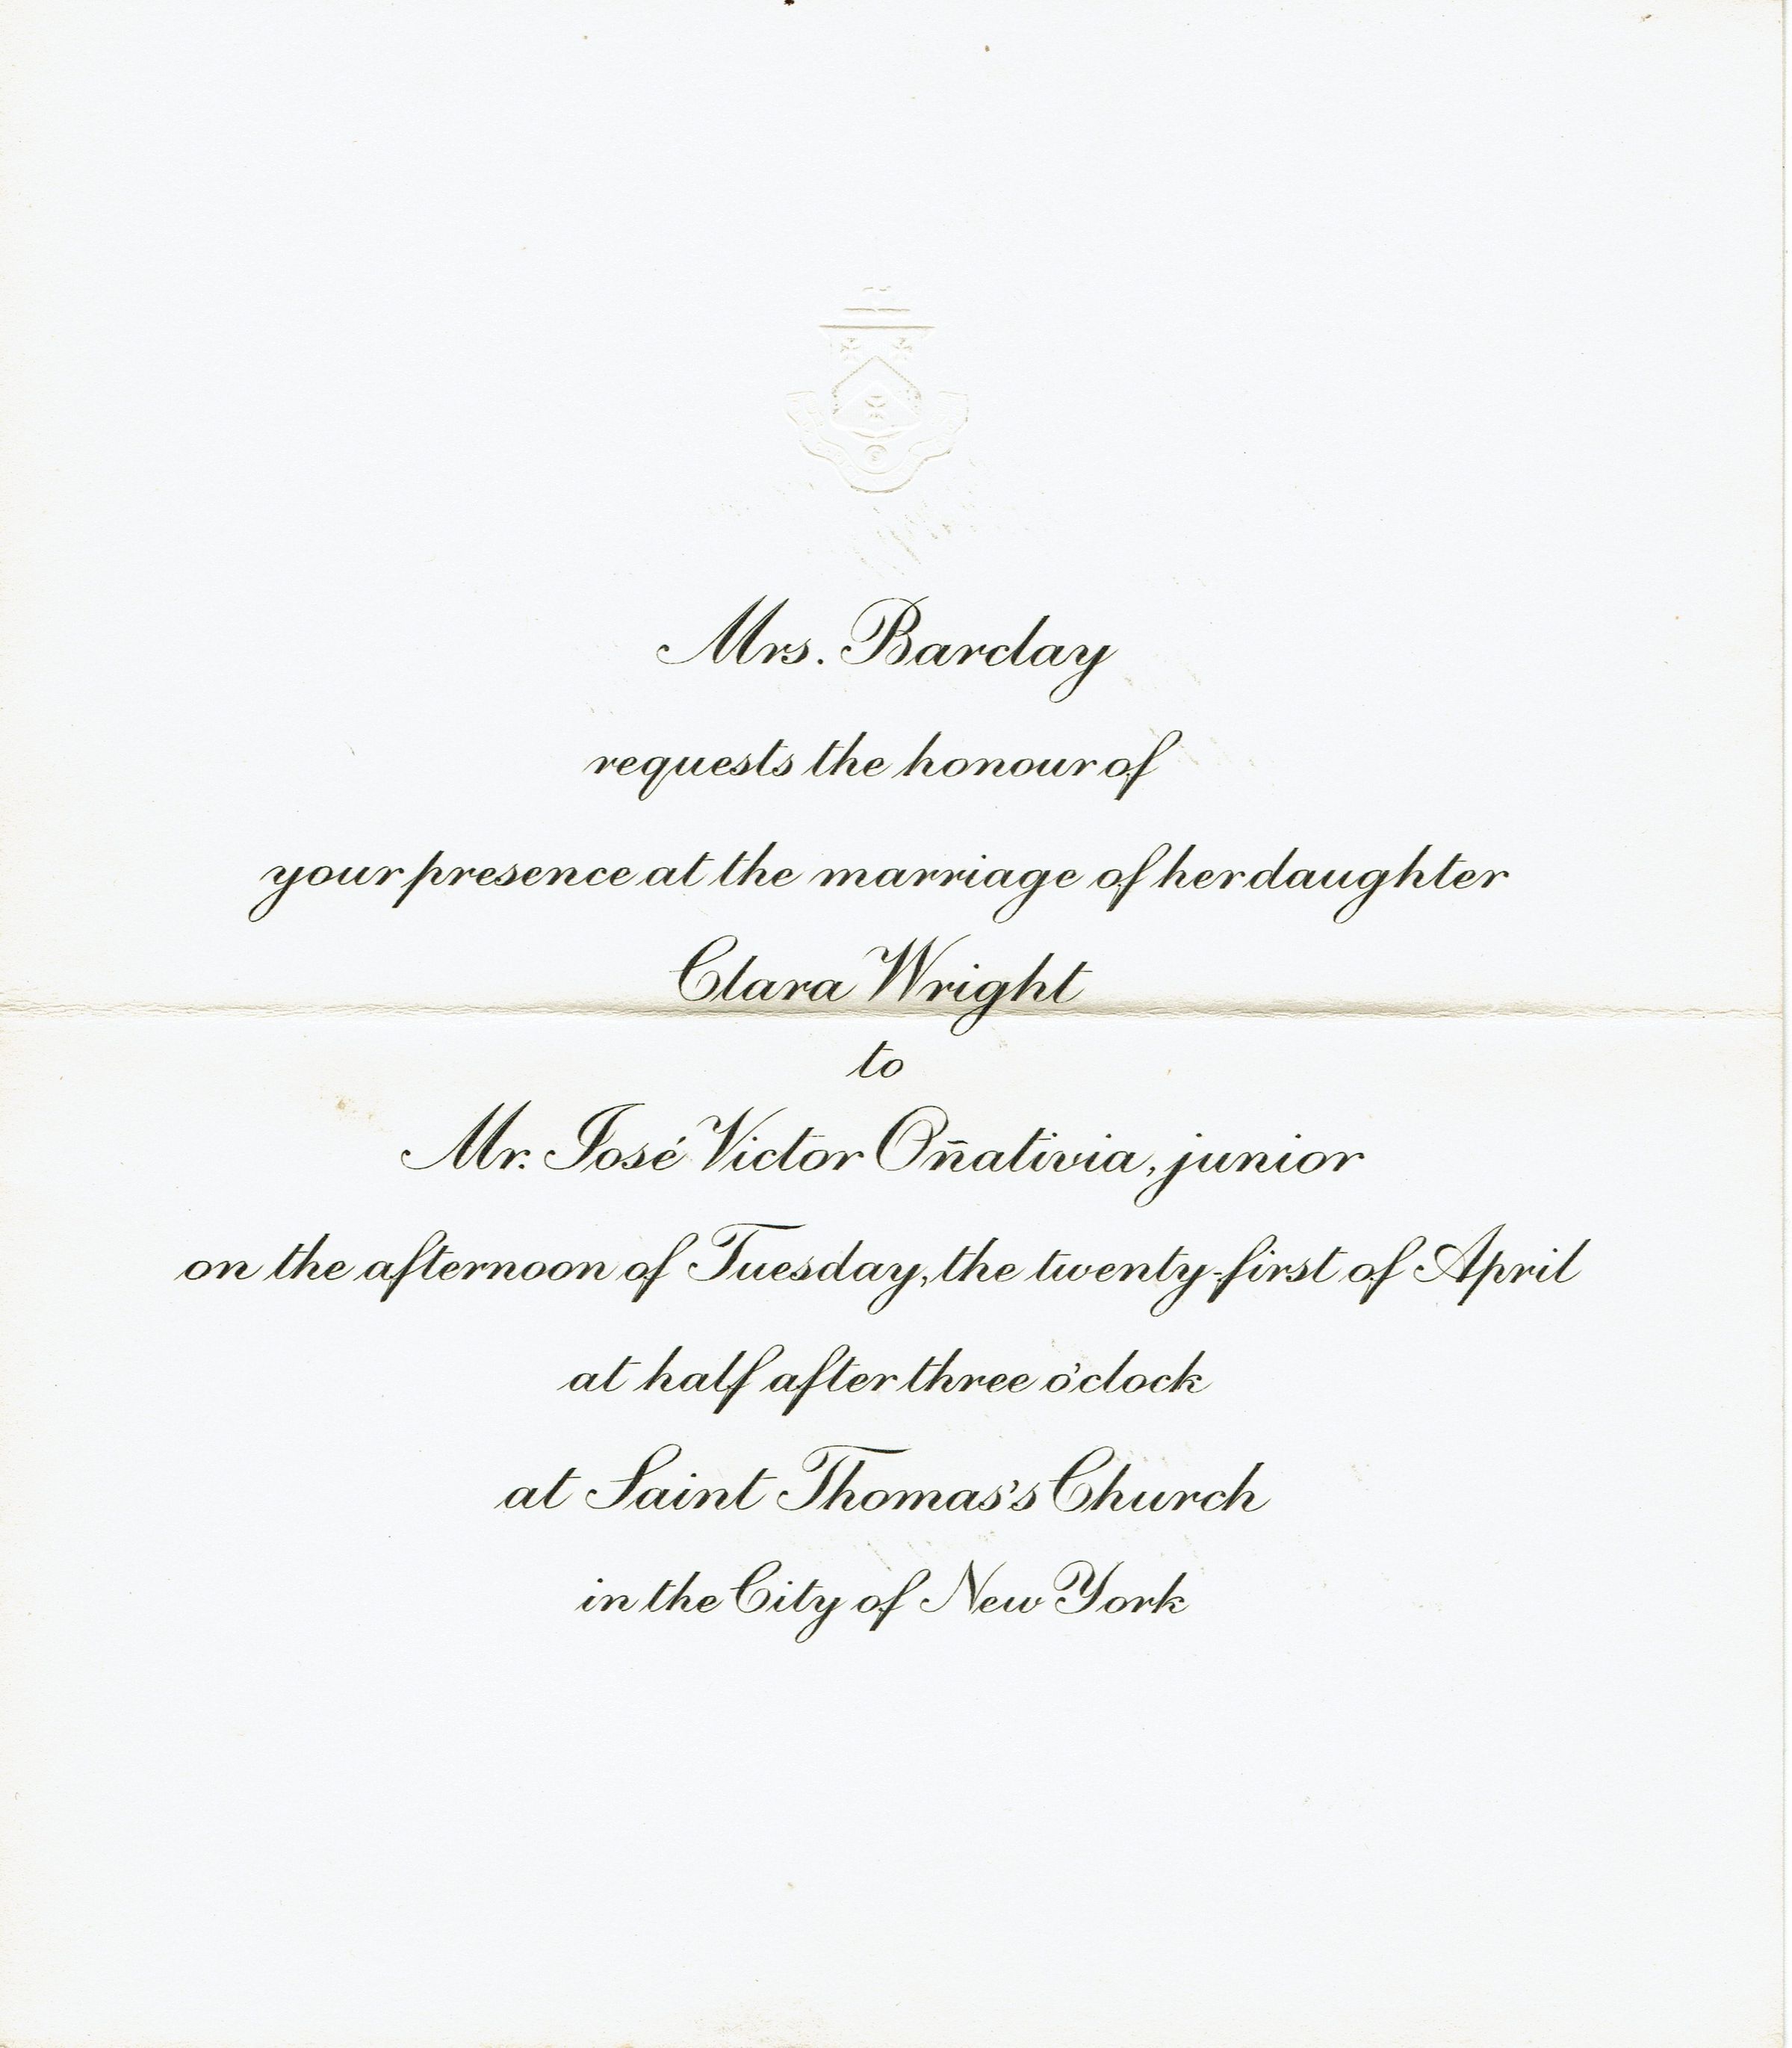 Mrs. Barclay
requests the honour of
your presence at the marriage of her daughter
Clara Wright
to
Mr. José Victor Oñativia, junior
on the afternoon of Tuesday, the twenty-first of April
at half after three o'clock
at Saint Thomas's Church
in the City of New York